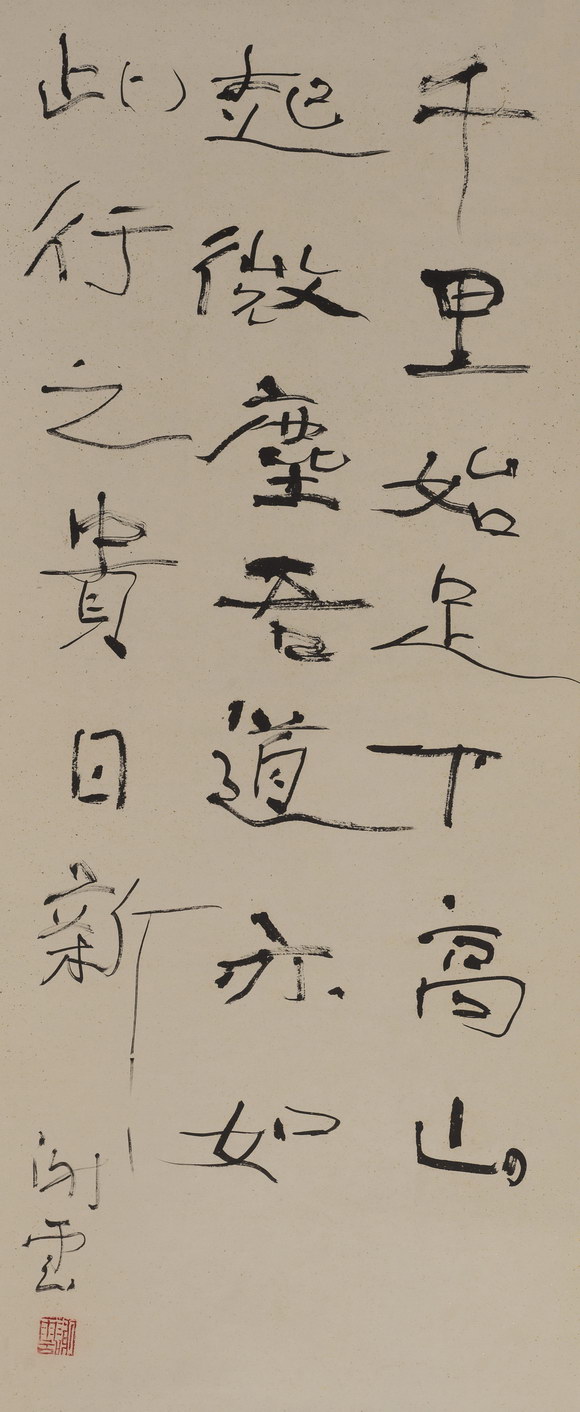 千里始足下高山
起微塵吾道亦如
此行之貴日新
謝雲